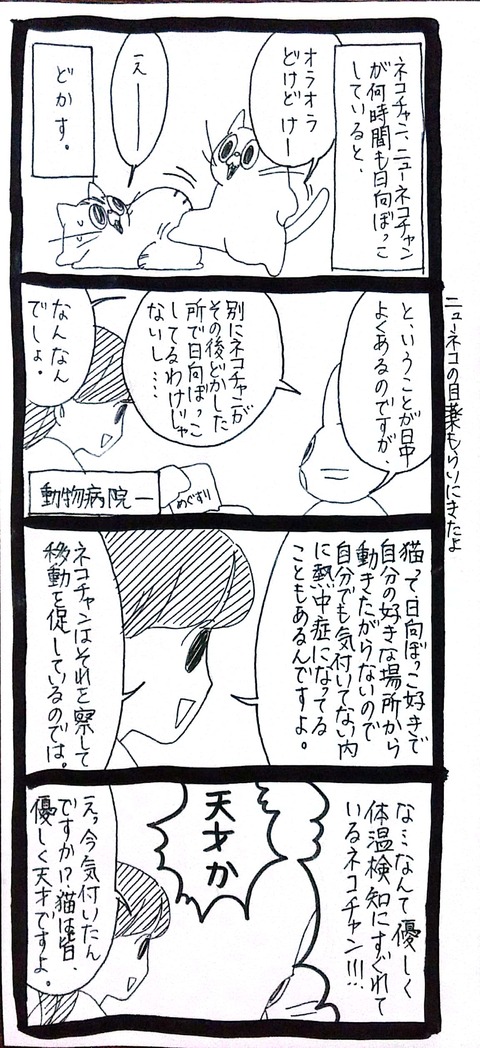 ネコチャン、ニューネコチャン
が何時間も日向ぼっこ
していると、
オラオラ
どけどけー
えー
どかす。
ニューネコの目薬もらいにきたよ
と、いうことが日中
よくあるのですが、
別にネコチャンが
その後どかした
所で日向ぼっこ
してるわけじゃ
ないし…
なんなん
でしょ。
めぐすり
動物病院ー
猫って日向ぼっこ好きで
自分の好きな場所から
動きたがらないので
自分でも気付いてない内
に熱中症になってる
こともあるんですよ。
ネコチャンはそれを察して
移動を促しているのでは。
な…なんて優しく
体温検知にすぐれて
いるネコチャン!!!
天才か
えっ今気付いたん
ですか!?猫は皆、
優しく天才ですよ。